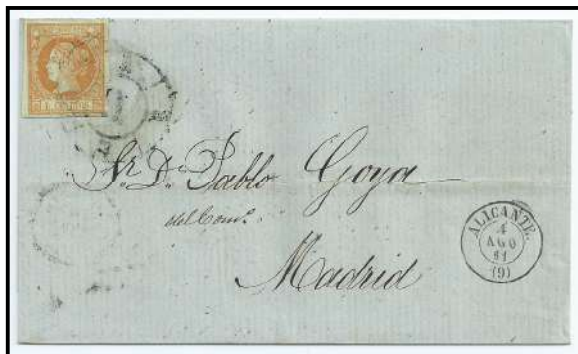 Sr. Dn. Pablo Goya
del Comº.
Madrid
ALICANTE.
4
AGO
61
(9)